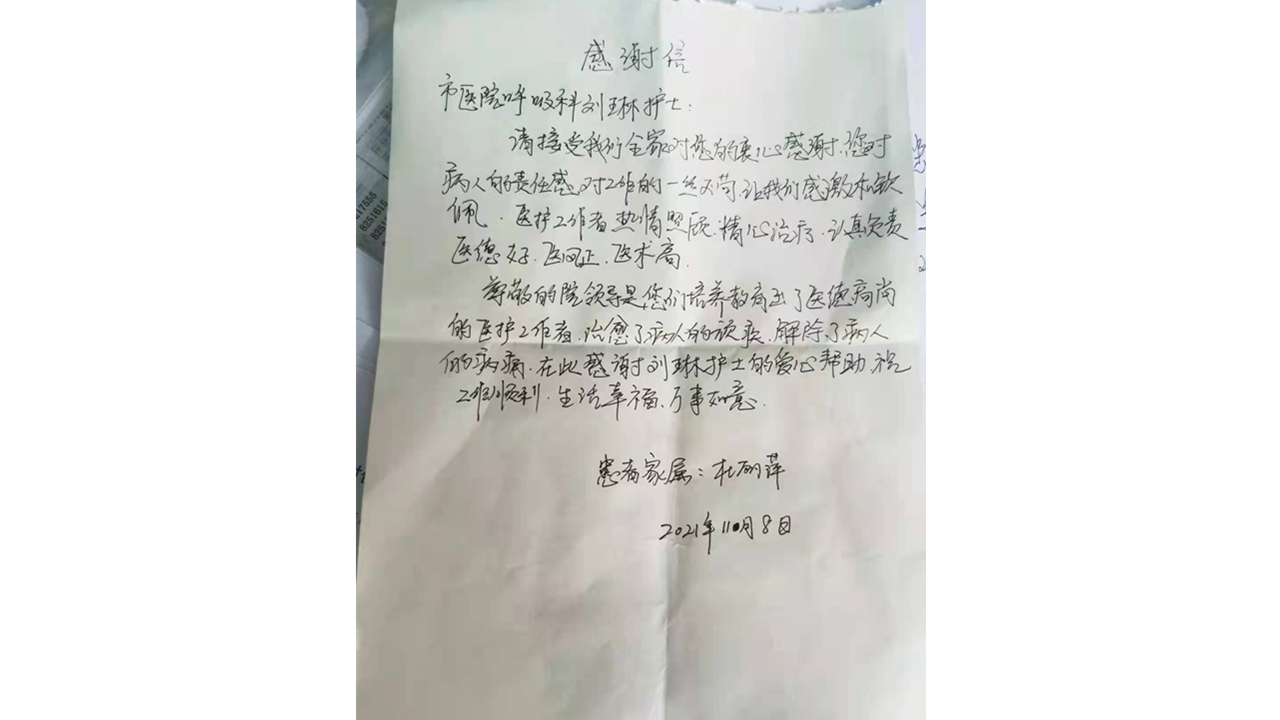 感谢信
市医院呼吸科刘琳护士:
请接受我们全家对您的衷心感谢.您对
病人的责任感.对工作的一丝不苟.让我们感激和钦
佩.医护工作者热情照顾.精心治疗.认真负责
医德好.医风正.医术高.
尊敬的院领导是您们培养教育出了医德高尚
的医护工作者.治愈了病人的顽疾.解除了病人
的病痛.在此感谢刘琳护士的爱心帮助.祝
工作顺利.生活幸福、万事如意.
患者家属:杜丽萍
2021年11月8日
8251616